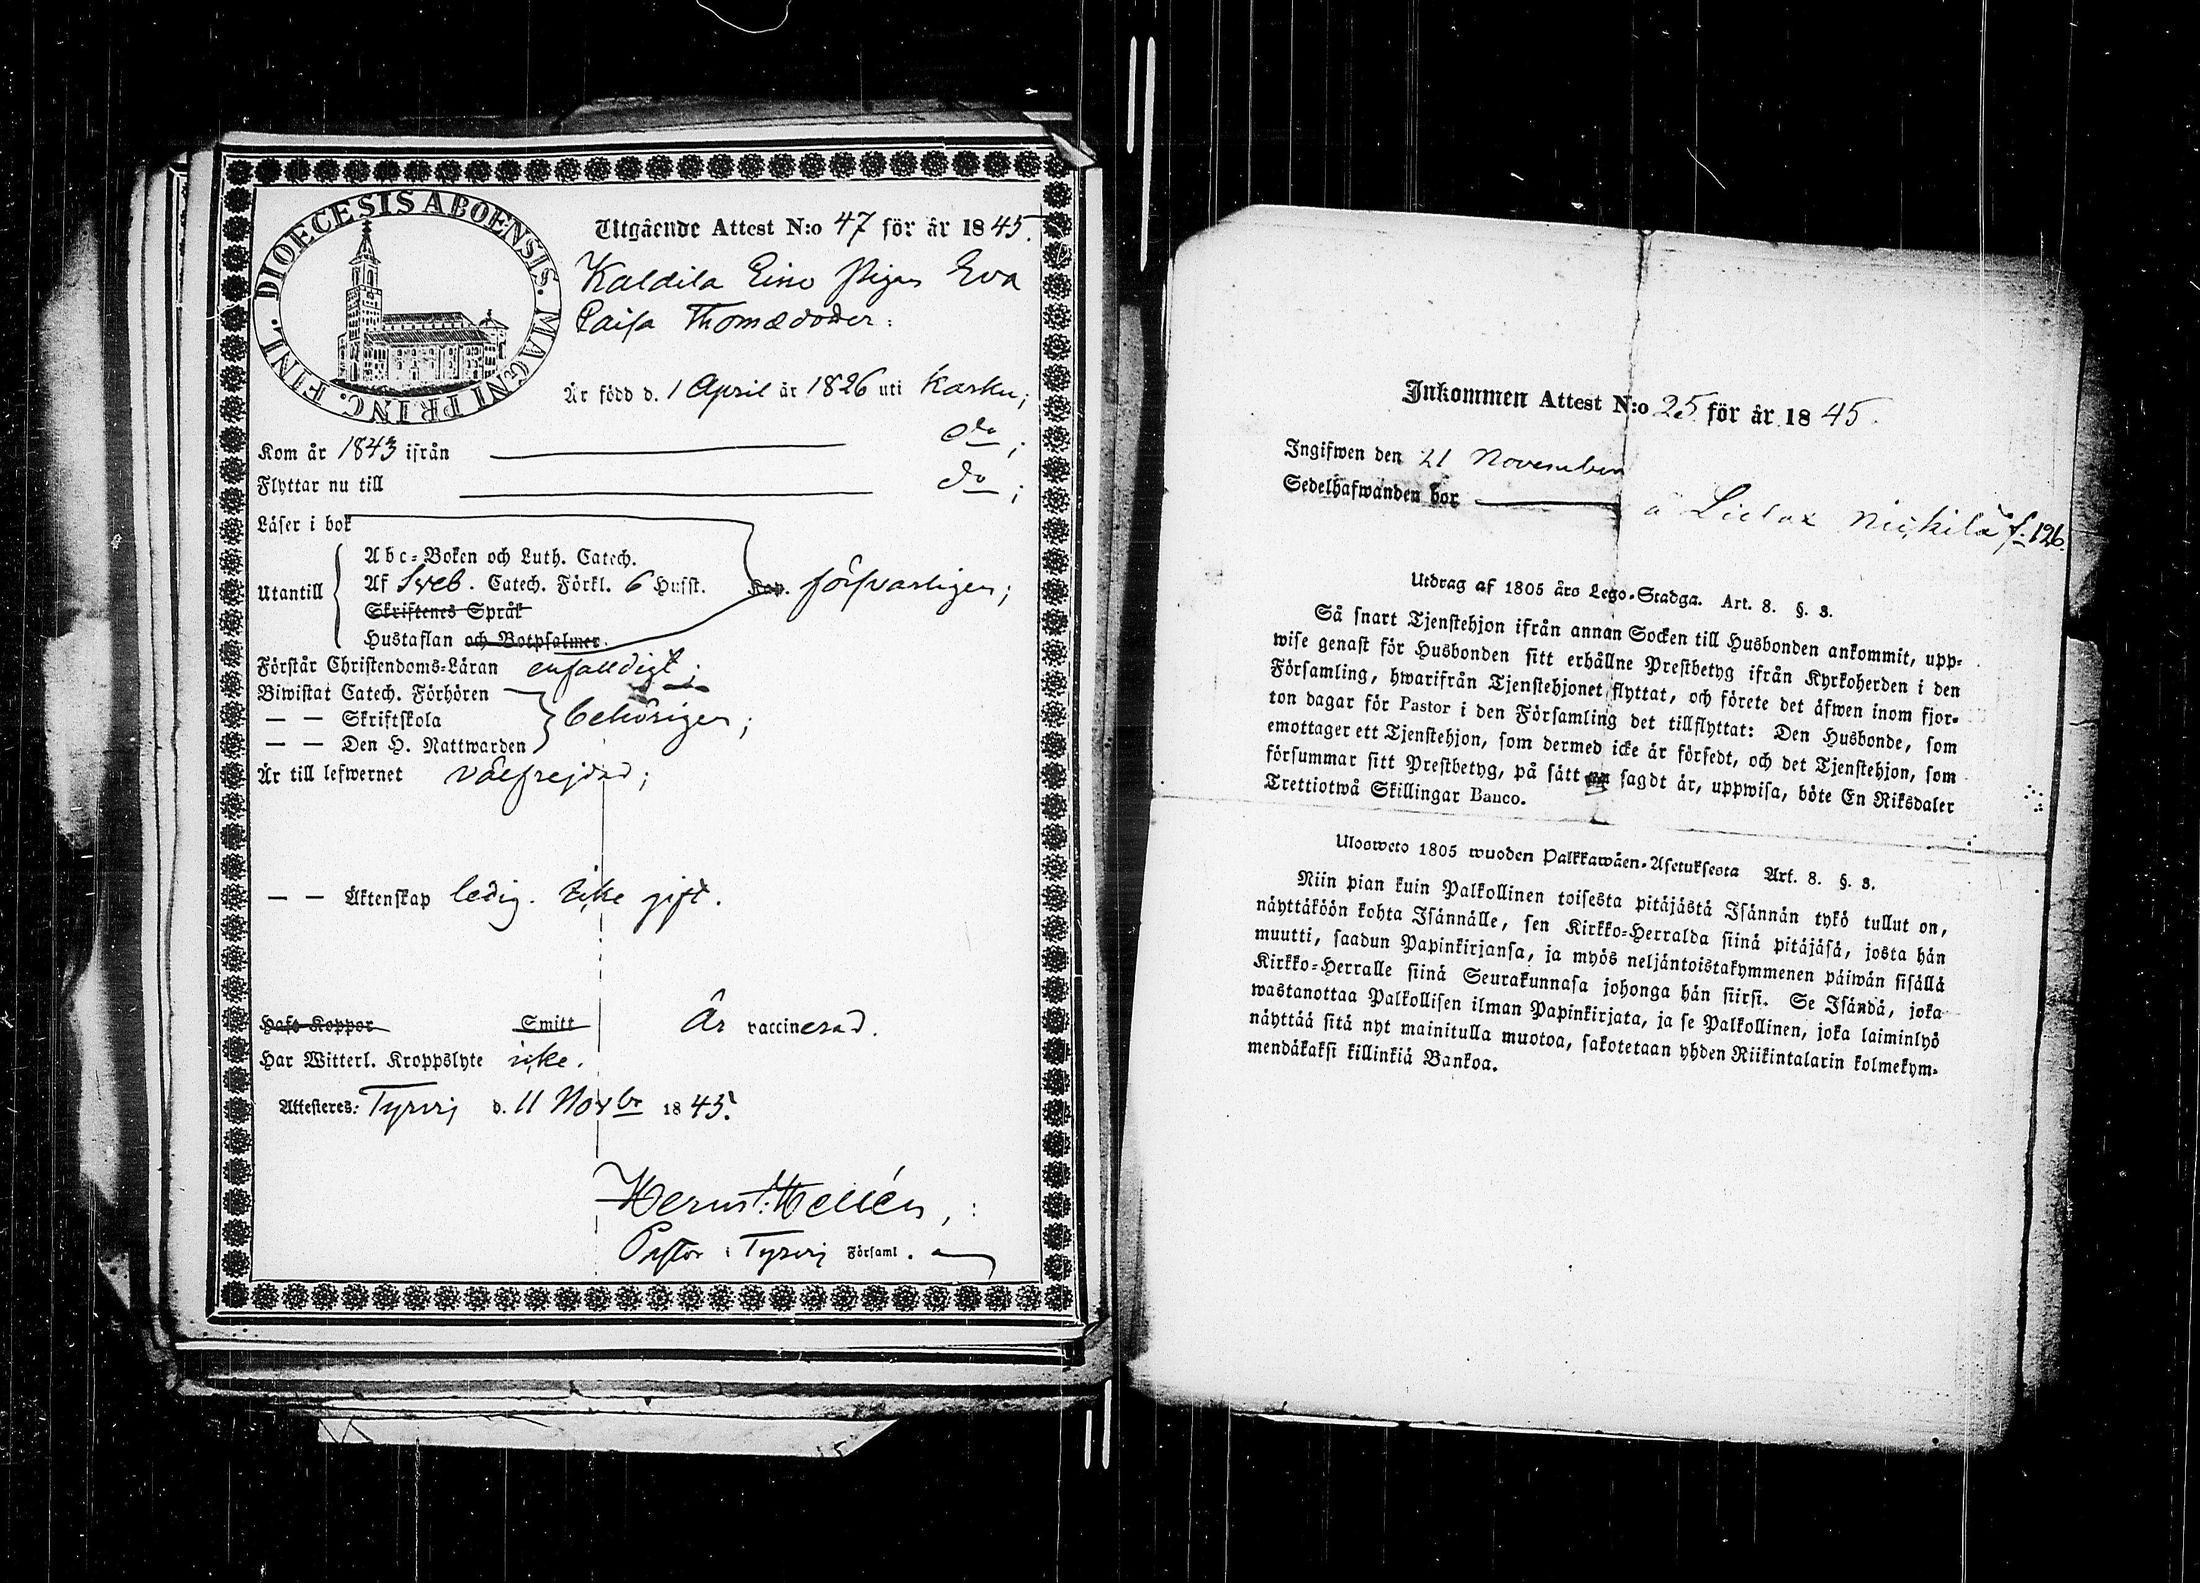 DIOECESIS ABOENSIS. MAGNI PRINC. FINL.
Utgående Attest N:o 47 för år 1845.
Kaldila Eino Pigan Eva
Caisa Thomædotter:
Är född d. 1 April år 1826 uti Karku;
Kom år 1843 ifrån do;
Flyttar nu till do;
Läser i bok
Utantill
Abc-Boken och Luth. Catech.
Af Sveb. Catech. Förkl. 6 Hufst. försvarligen;
Skriftenes Språk
Hustaflan och Botpsalmer.
Förstår Christendoms-Läran enfalldigt;
Biwistat Catech. Förhören
— — Skriftskola behörigen;
— — Den H. Nattwarden
Är till lefwernet välfrejdad;
— — Äktenskap ledig. icke gift.
Haft Koppor Smitt Är vaccinerad.
Har Witterl. Kroppslyte icke.
Attesteres: Tyrvis d. 11 Novbr 1845.
Pastor i Tyrvis Församl.
Inkommen Attest N:o 25 för år 1845.
Ingifwen den 21 November
Sedelhafwanden bor å Liclax f. 126.
Utdrag af 1805 års Lego-Stadga. Art. 8. §. 3.
Så snart Tjenstehjon ifrån annan Socken till Husbonden ankommit, upp-
wise genast för Husbonden sitt erhållne Prestbetyg ifrån Kyrkoherden i den
Församling, hwarifrån Tjenstehjonet flyttat, och förete det äfwen inom fjor-
ton dagar för Pastor i den Församling det tillflyttat: Den Husbonde, som
emottager ett Tjenstehjon, som dermed icke är försedt, och det Tjenstehjon, som
försummar sitt Prestbetyg, på sätt sagdt är, uppwisa, böte En Riksdaler
Trettiotwå Skillingar Banco.
Uloswето 1805 wuoden Palkkawäen-Asetuksesta Art. 8. §. 3.
Niin pian kuin Palkollinen toisesta pitäjästä Isännän tykö tullut on,
näyttäköön kohta Isännälle, sen Kirkko-Herralda siinä pitäjäsä, josta hän
muutti, saadun Papinkirjansa, ja myös neljäntoistakymmenen päiwän sisällä
Kirkko-Herralle siinä Seurakunnasa johonga hän siirsi. Se Isändä, joka
wastanottaa Palkollisen ilman Papinkirjata, ja se Palkollinen, joka laiminlyö
näyttää sitä nyt mainitulla muotoa, sakotetaan yhden Riikintalarin kolmekym-
mendäkaksi killinkiä Bankoa.